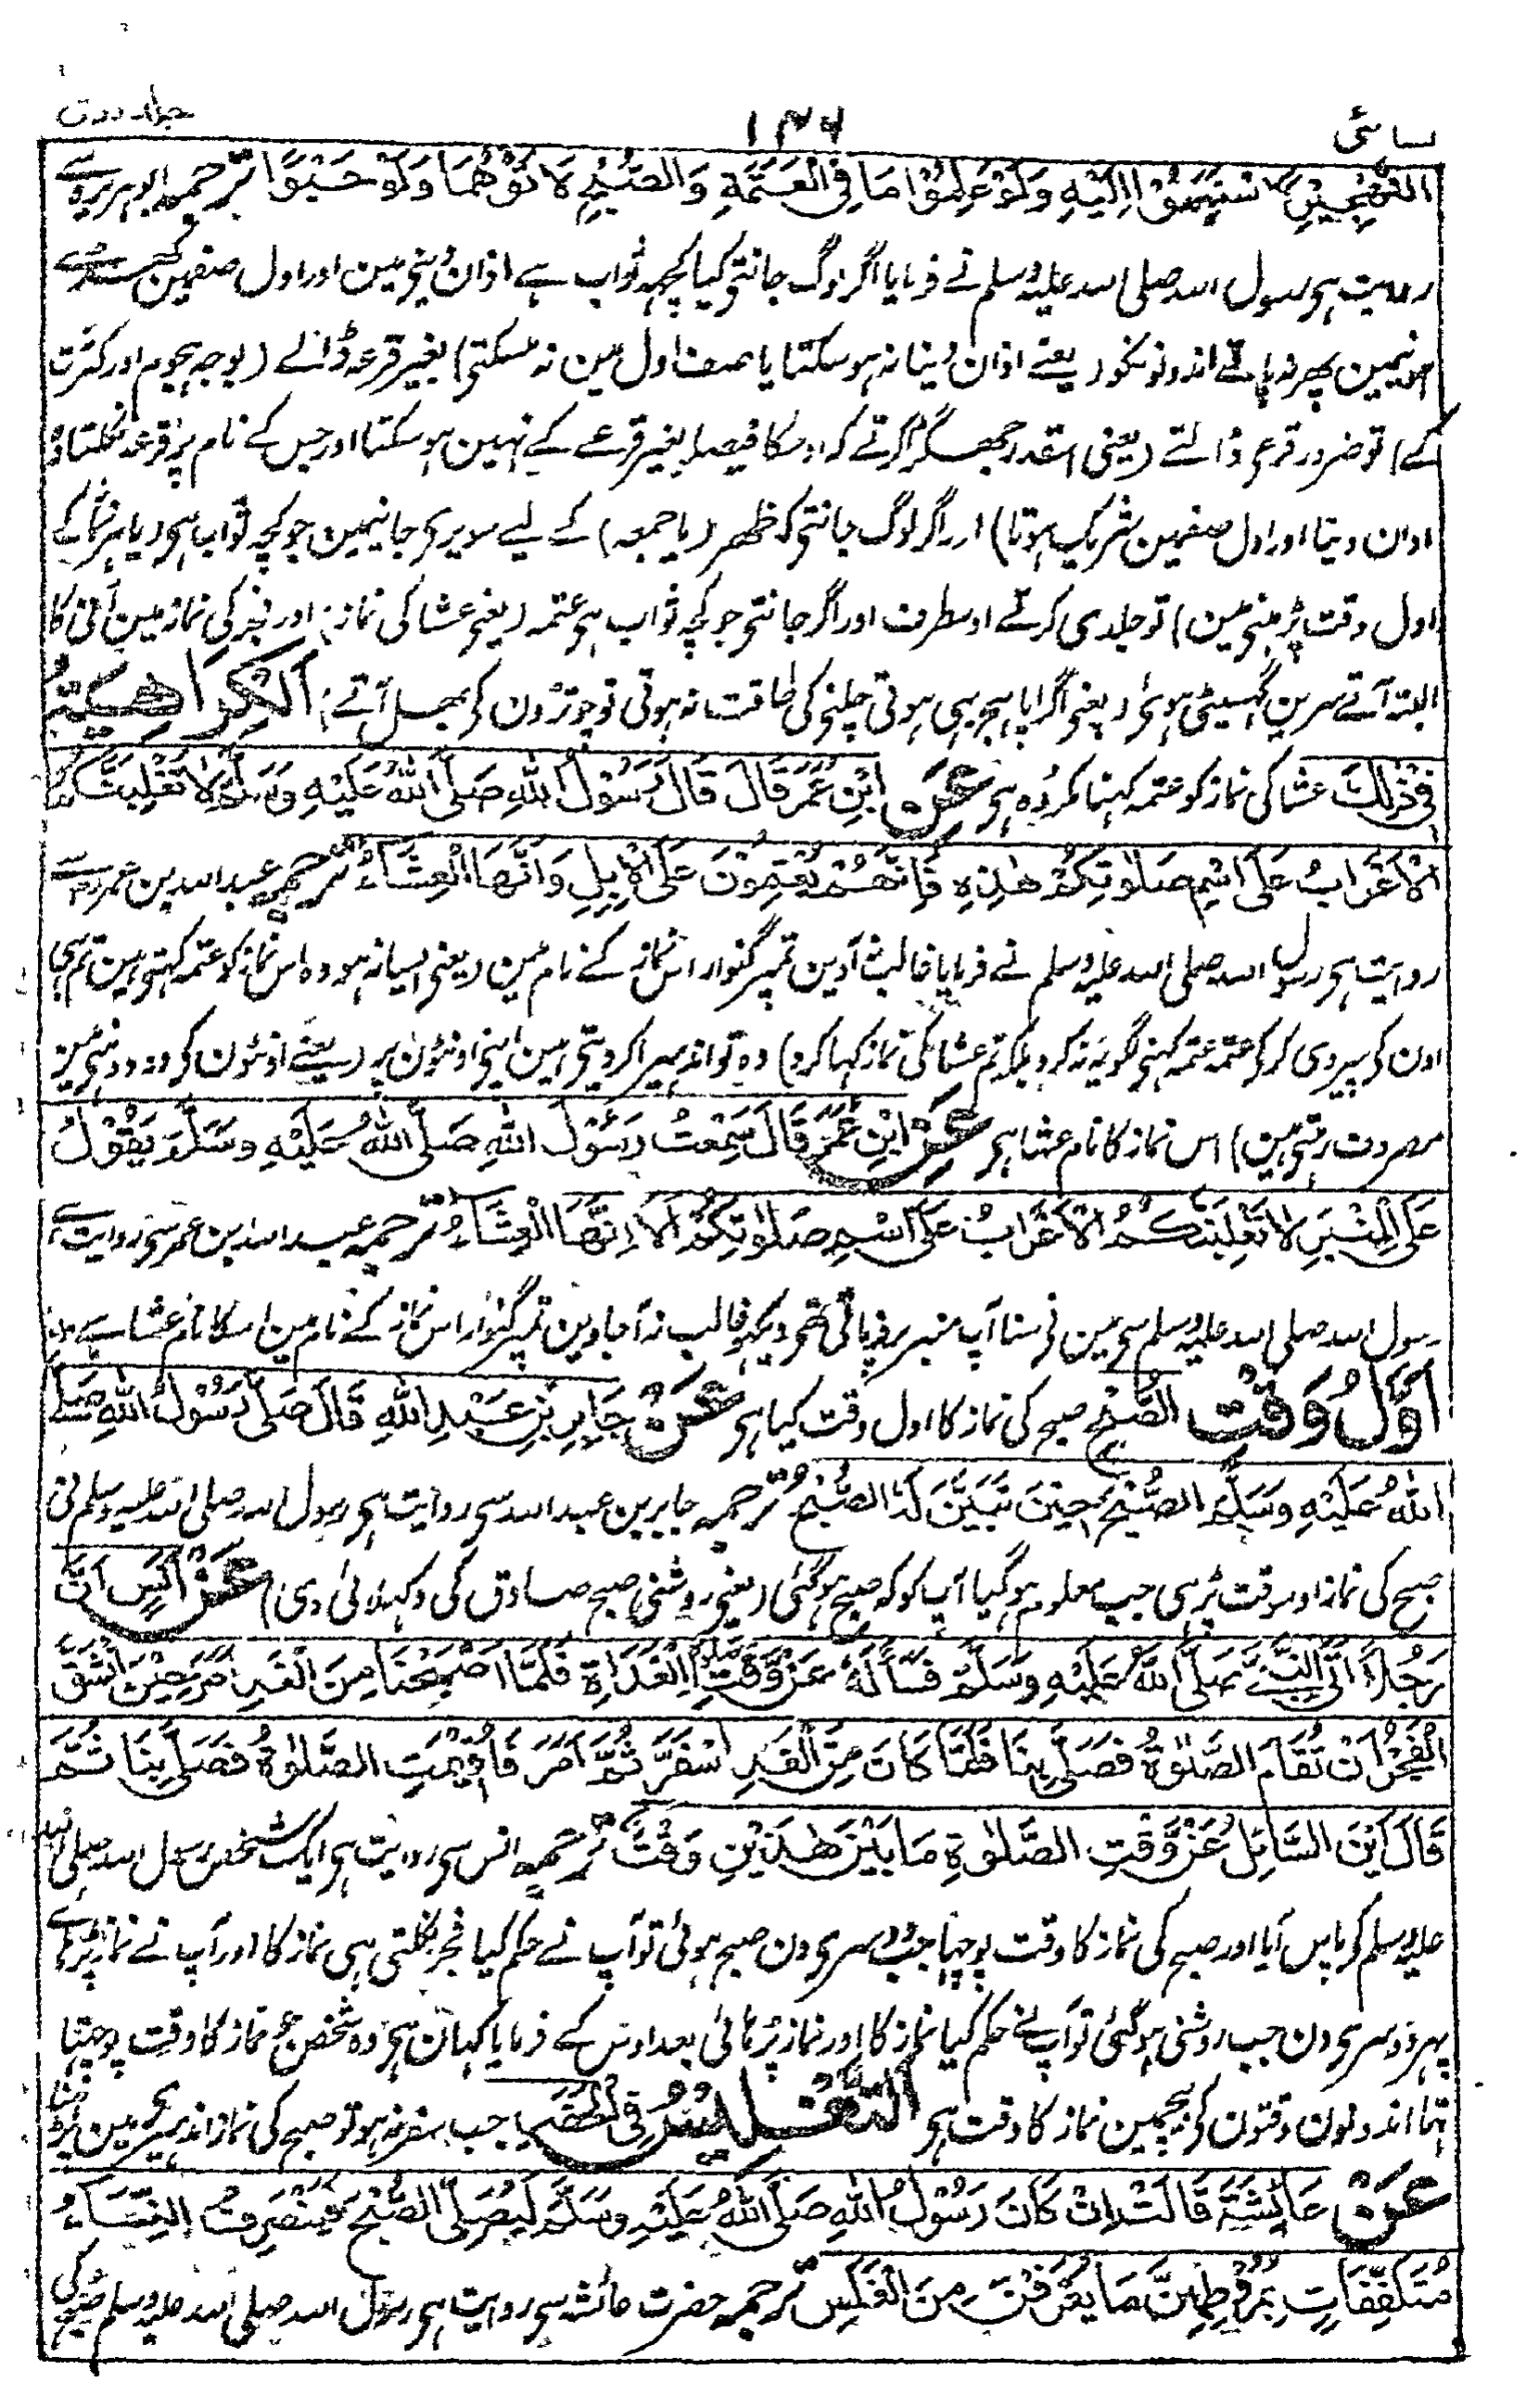 نسائی ۱۴۶ جلد دوم
التَّهْجِيْرِ لَاسْتَبَقُوْا اِلَيْهِ وَلَوْ عَلِمُوْا مَا فِی الْعَتَمَةِ وَالصُّبْحِ لَاَتَوْهُمَا وَلَوْ حَبْوًا ترجمہ ابوہریرہ سے
روایت ہی رسول اللہ صلی اللہ علیہ وسلم نے فرمایا اگر لوگ جانتی کیا کچھہ ثواب ہے اذان دینی مین اور اول صف مین کہڑے
ہونیمین پھر نہ پاتے ان دونونکو (یعنے اذان دینا نہ ہوسکتا یا صف اول مین نہ ہوسکتی) بغیر قرعہ ڈالے (بوجہ ہجوم اور کثرت
کے) تو ضرور قرعہ ڈالتے (یعنی اسقدر جھگڑا کرتے کہ اوسکا فیصلہ بغیر قرعے کے نہین ہوسکتا اور جس کے نام پر قرعہ نکلتا وہ
اذان دیتا اور اول صف مین شریک ہوتا) اور اگر لوگ جانتی کہ ظہر (یا جمعہ) کے لیے سویری جانیمین جو کچھہ ثواب ہی (یا ہر نماز کے
اول وقت پڑہنی مین) تو جلدی کرتے اوسطرف اور اگر جانتی جو کچھہ ثواب ہی عتمہ (یعنی عشا کی نماز) اور فجر کی نماز مین آنی کا
البتہ آتے سرین گہسیٹی ہوئی (یعنی اگر اپاہج بہی ہوتی چلنی کی طاقت نہ ہوتی تو چوتڑون کے بہل آتے) اَلْكَرَاهِيَةُ
فِیْ ذٰلِكَ عشا کی نماز کو عتمہ کہنا مکروہ ہی عَنِ ابْنِ عُمَرَ قَالَ قَالَ رَسُوْلُ اللهِ صَلَّی اللهُ عَلَيْهِ وَسَلَّمَ لَا تَغْلِبَنَّكُمُ
الْاَعْرَابُ عَلَی اسْمِ صَلٰوتِكُمْ هٰذِهِ فَاِنَّهُمْ يُعْتِمُوْنَ عَلَی الْاِبِلِ وَاِنَّهَا الْعِشَاءُ ترجمہ عبداللہ بن عمر سے
روایت ہی رسول اللہ صلی اللہ علیہ وسلم نے فرمایا غالب نہ آدین تمپر گنوار اس نماز کے نام مین (یعنی ایسا نہ ہو وہ اس نماز کو عتمہ کہتی ہین تم بہی
اون کی پیروی کرکے عتمہ عتمہ کہنی لگو یہ نہ کرو بلکہ تم عشا کی نماز کہا کرو) وہ تو اندہیرا کردیتی ہین اپنی اونٹون پر (یعنے اونٹون کو دودہ دوہنی مین
مصروف رہتی ہین) اس نماز کا نام عشا ہی عَنِ ابْنِ عُمَرَ قَالَ سَمِعْتُ رَسُوْلَ اللهِ صَلَّی اللهُ عَلَيْهِ وَسَلَّمَ يَقُوْلُ
عَلَی الْمِنْبَرِ لَا تَغْلِبَنَّكُمُ الْاَعْرَابُ عَلَی اسْمِ صَلٰوتِكُمْ اَلَا اِنَّهَا الْعِشَاءُ ترجمہ عبداللہ بن عمر سی روایت ہے
رسول اللہ صلی اللہ علیہ وسلم سی مین نی سنا آپ منبر پر فرماتی تھی دیکھو غالب نہ آجادین تمپر گنوار اس نماز کے نام مین اسکا نام عشا ہے
اَوَّلُ وَقْتِ الصُّبْحِ صبح کی نماز کا اول وقت کیا ہی عَنْ جَابِرِ بْنِ عَبْدِ اللهِ قَالَ صَلَّی رَسُوْلُ اللهِ صَلَّی
اللهُ عَلَيْهِ وَسَلَّمَ الصُّبْحَ حِيْنَ تَبَيَّنَ لَهُ الصُّبْحُ ترجمہ جابر بن عبداللہ سی روایت ہی رسول اللہ صلی اللہ علیہ وسلم نی
صبح کی نماز اوسوقت پڑہی جب معلوم ہوگیا آپ کو کہ صبح ہوگئی (یعنی روشنی صبح صادق کی دکہلائی دی) عَنْ اَنَسٍ اَنَّ
رَجُلًا اَتَی النَّبِیَّ صَلَّی اللهُ عَلَيْهِ وَسَلَّمَ فَسَاَلَهُ عَنْ وَقْتِ صَلٰوةِ الْغَدَاةِ فَلَمَّا اَصْبَحْنَا مِنَ الْغَدِ اَمَرَ حِيْنَ انْشَقَّ
الْفَجْرُ اَنْ تُقَامَ الصَّلٰوةُ فَصَلّٰی بِنَا فَلَمَّا كَانَ مِنَ الْغَدِ اَسْفَرَ ثُمَّ اَمَرَ فَاُقِيْمَتِ الصَّلٰوةُ فَصَلّٰی بِنَا ثُمَّ
قَالَ اَيْنَ السَّائِلُ عَنْ وَقْتِ الصَّلٰوةِ مَا بَيْنَ هٰذَيْنِ وَقْتٌ ترجمہ انس سی روایت ہی ایک شخص رسول اللہ صلی اللہ
علیہ وسلم کی پاس آیا اور صبح کی نماز کا وقت پوچہا جب دوسری دن صبح ہوئی تو آپ نے حکم کیا فجر نکلتی ہی نماز کا اور آپ نے نماز پڑہائے
پہر دوسری دن جب روشنی ہوگئی تو آپ نے حکم کیا نماز کا اور نماز پڑہائی بعد اوس کے فرمایا کہان ہی وہ شخص جو نماز کا وقت پوچہتا
تہا ان دونون وقتون کی بیچمین نماز کا وقت ہی اَلتَّغْلِيْسُ فِی الْحَضَرِ جب سفر نہ ہو تو صبح کی نماز اندہیری مین پڑہنا
عَنْ عَائِشَةَ قَالَتْ اِنْ كَانَ رَسُوْلُ اللهِ صَلَّی اللهُ عَلَيْهِ وَسَلَّمَ لَيُصَلِّی الصُّبْحَ فَيَنْصَرِفُ النِّسَاءُ
مُتَلَفِّفَاتٍ بِمُرُوْطِهِنَّ مَا يُعْرَفْنَ مِنَ الْغَلَسِ ترجمہ حضرت عائشہ سی روایت ہی رسول اللہ صلی اللہ علیہ وسلم صبح کی